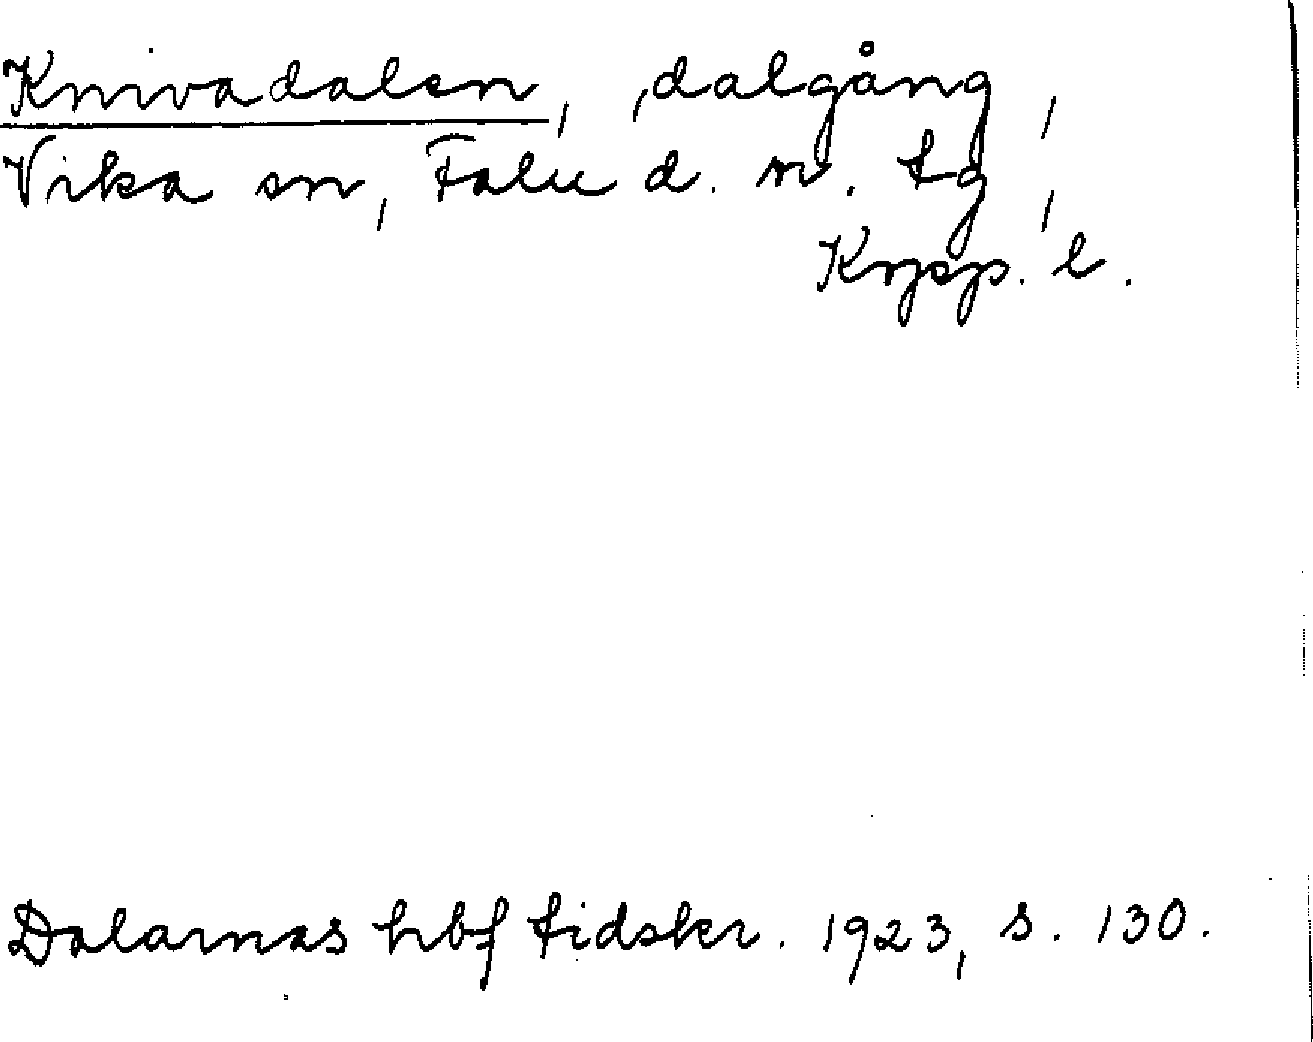 Knivadalen, dalgång,
Vika sn, Falu d. n. tg,
Kopp. l.
Dalarnas hbf tidskr. 1923, s. 130.